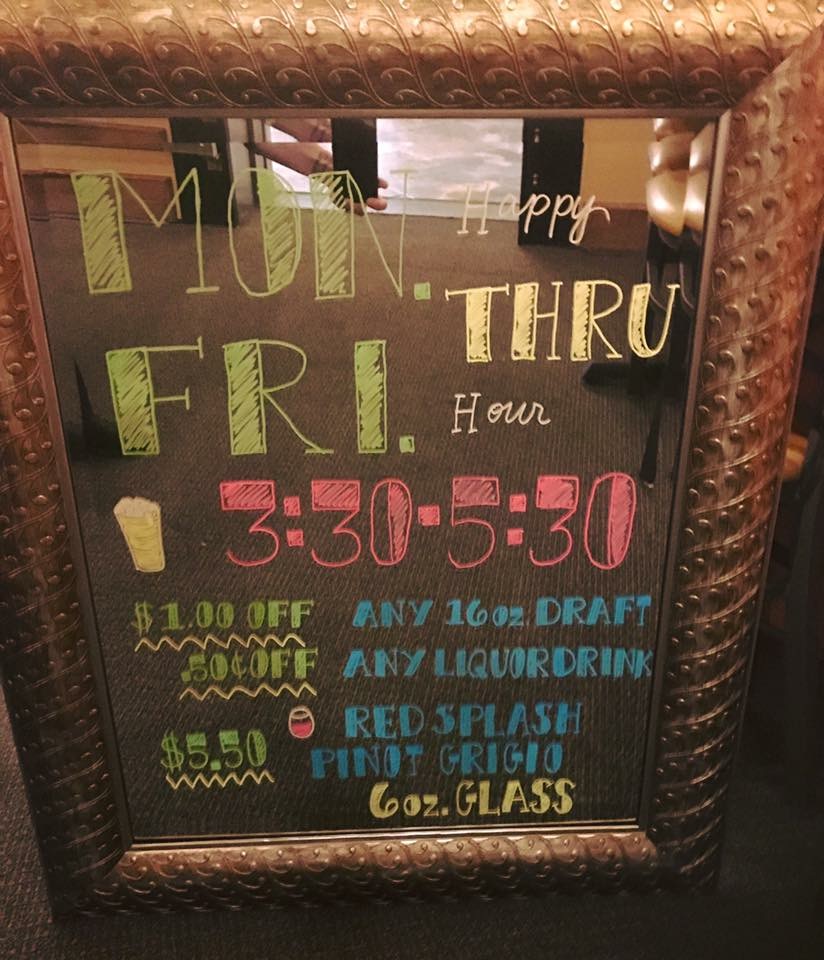 MON. Happy
THRU
FRI. Hour
3:30-5:30
$1.00 OFF ANY 16oz. DRAFT
.50¢ OFF ANY LIQUOR DRINK
$5.50 RED SPLASH
PINOT GRIGIO
6oz. GLASS